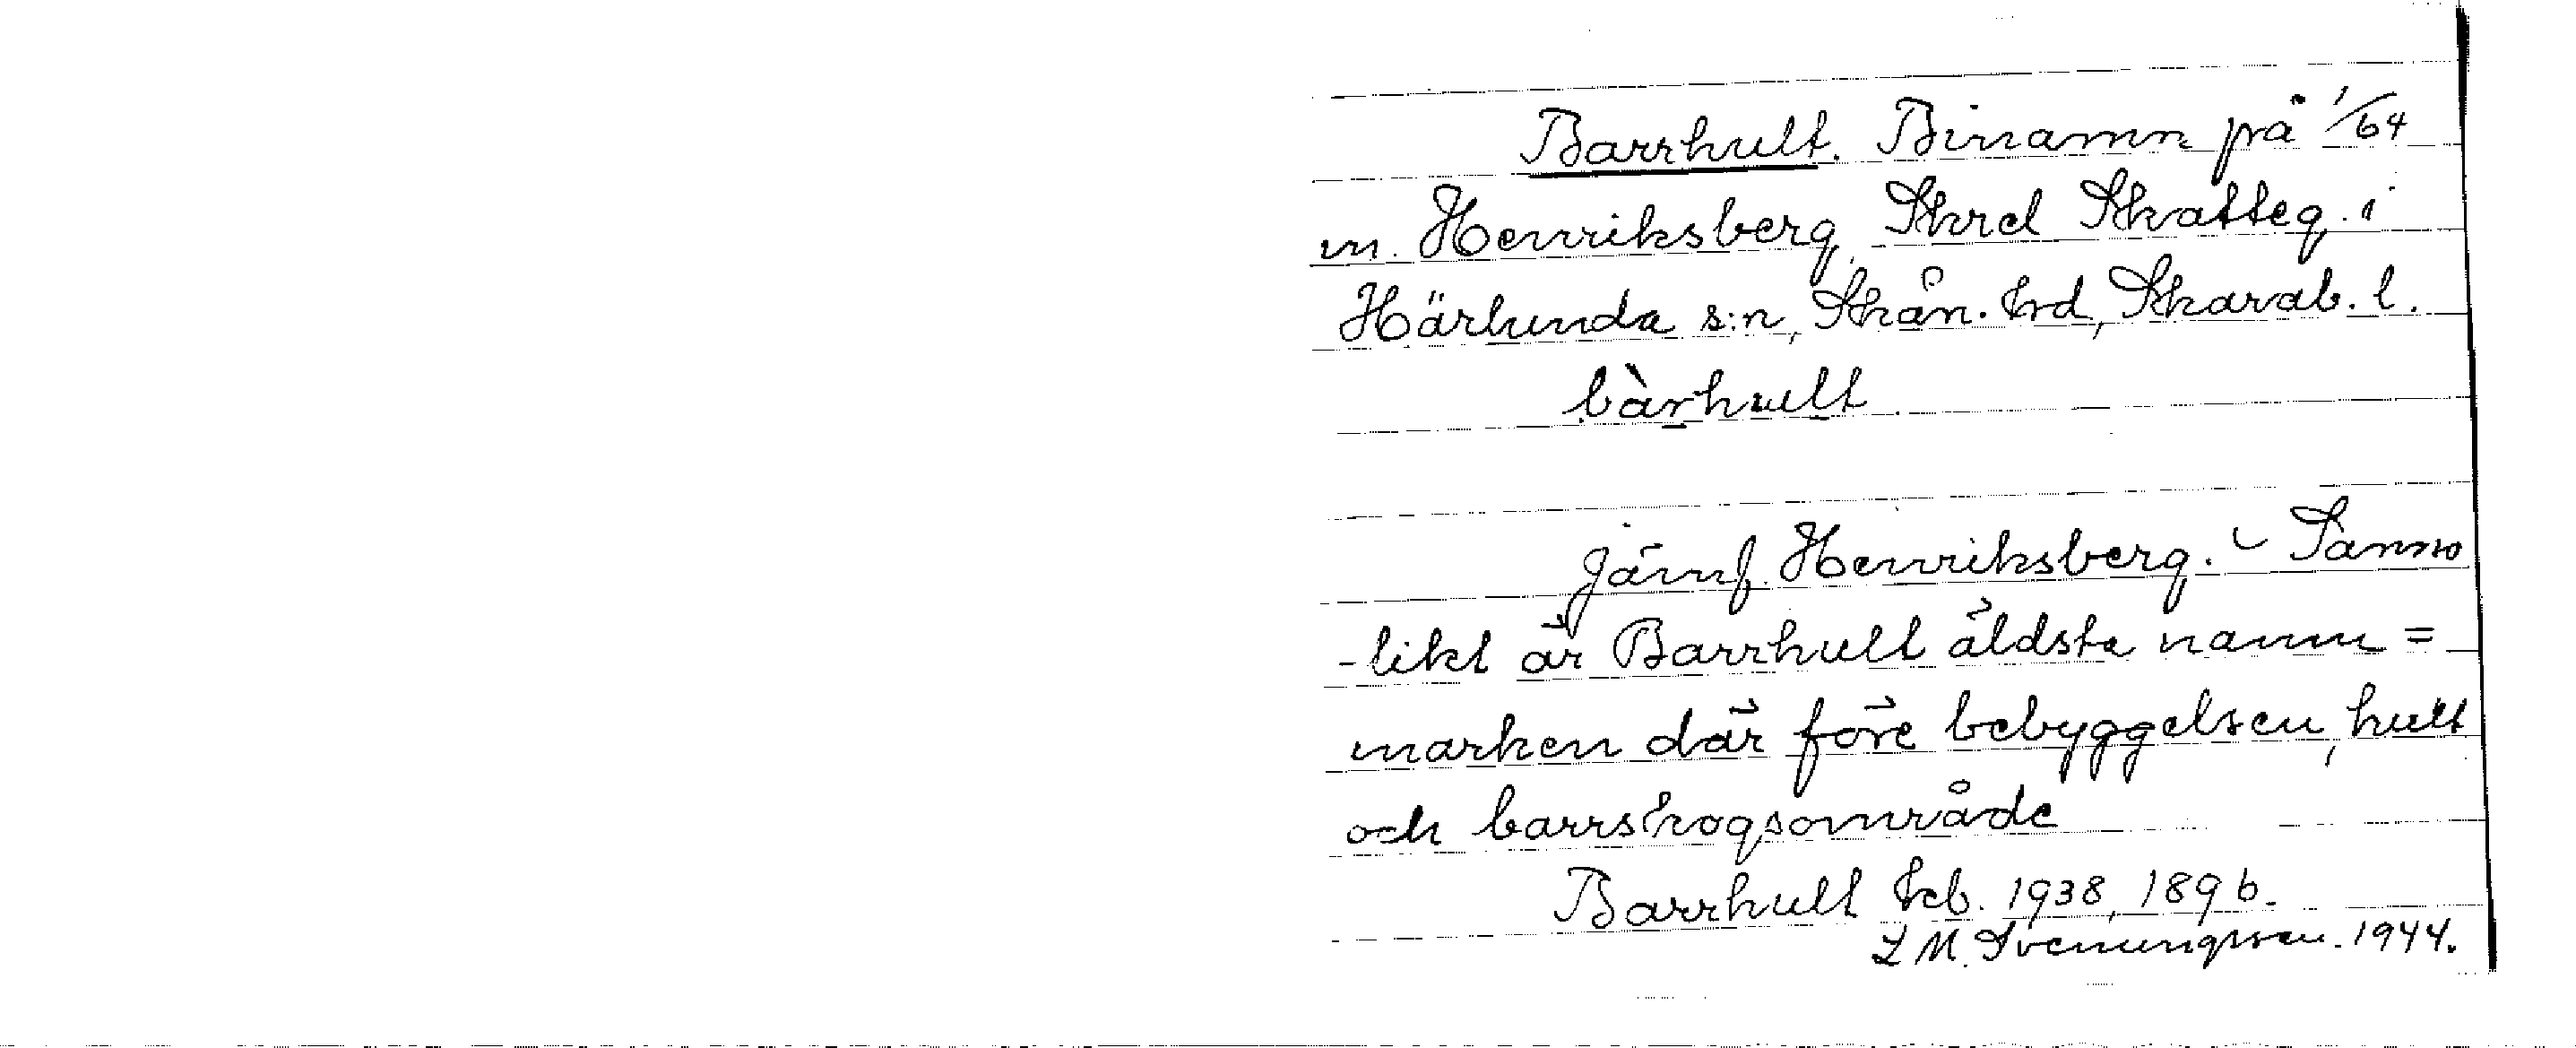 Barrhult. Binamn på 1/64
m. Henriksberg, Skrd Skatteg. i
Härlunda s:n, Skån. hrd, Skarab. l.
bàrhult
Jämf. Henriksberg. Sanno
-likt är Barrhult äldsta namn =
marken där före bebyggelsen, hult
och barrskogsområde
Barrhult kb. 1938, 1896.
L M. Svenungsson. 1944.